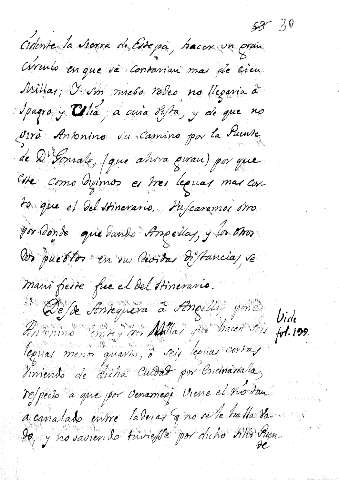 39
cidente la sierra de Estepa, hacer un gran
circulo en que se contarian mas de cien
millas; Y sin mucho rodeo no llegaria à
Ipagro, y Ulia; a cuia vista, y de que no
Antonino su camino por la Puente
de Dn Gonzalo, (que ahora giran) por que
este como digimos es tres leguas mas cor-
to, que el del Itinerario. Buscaremos otro
por donde quedando Angellas, y los otros
dos pueblos en sus devidas distancias, se
manifieste fue el del Itinerario.
Desde Antequera à Angellas, pone
Antonino millas que hacen seis
leguas menos quarto, ò seis leguas cortas
de dicha Ciudad por Encinareja,
respecto a que por Venamegi viene el rio tan
acanalado entre laderas q no se le halla va-
do, y no saviendo tuviesse por dicho sitio Puen-
te
Vide
fol. 199.